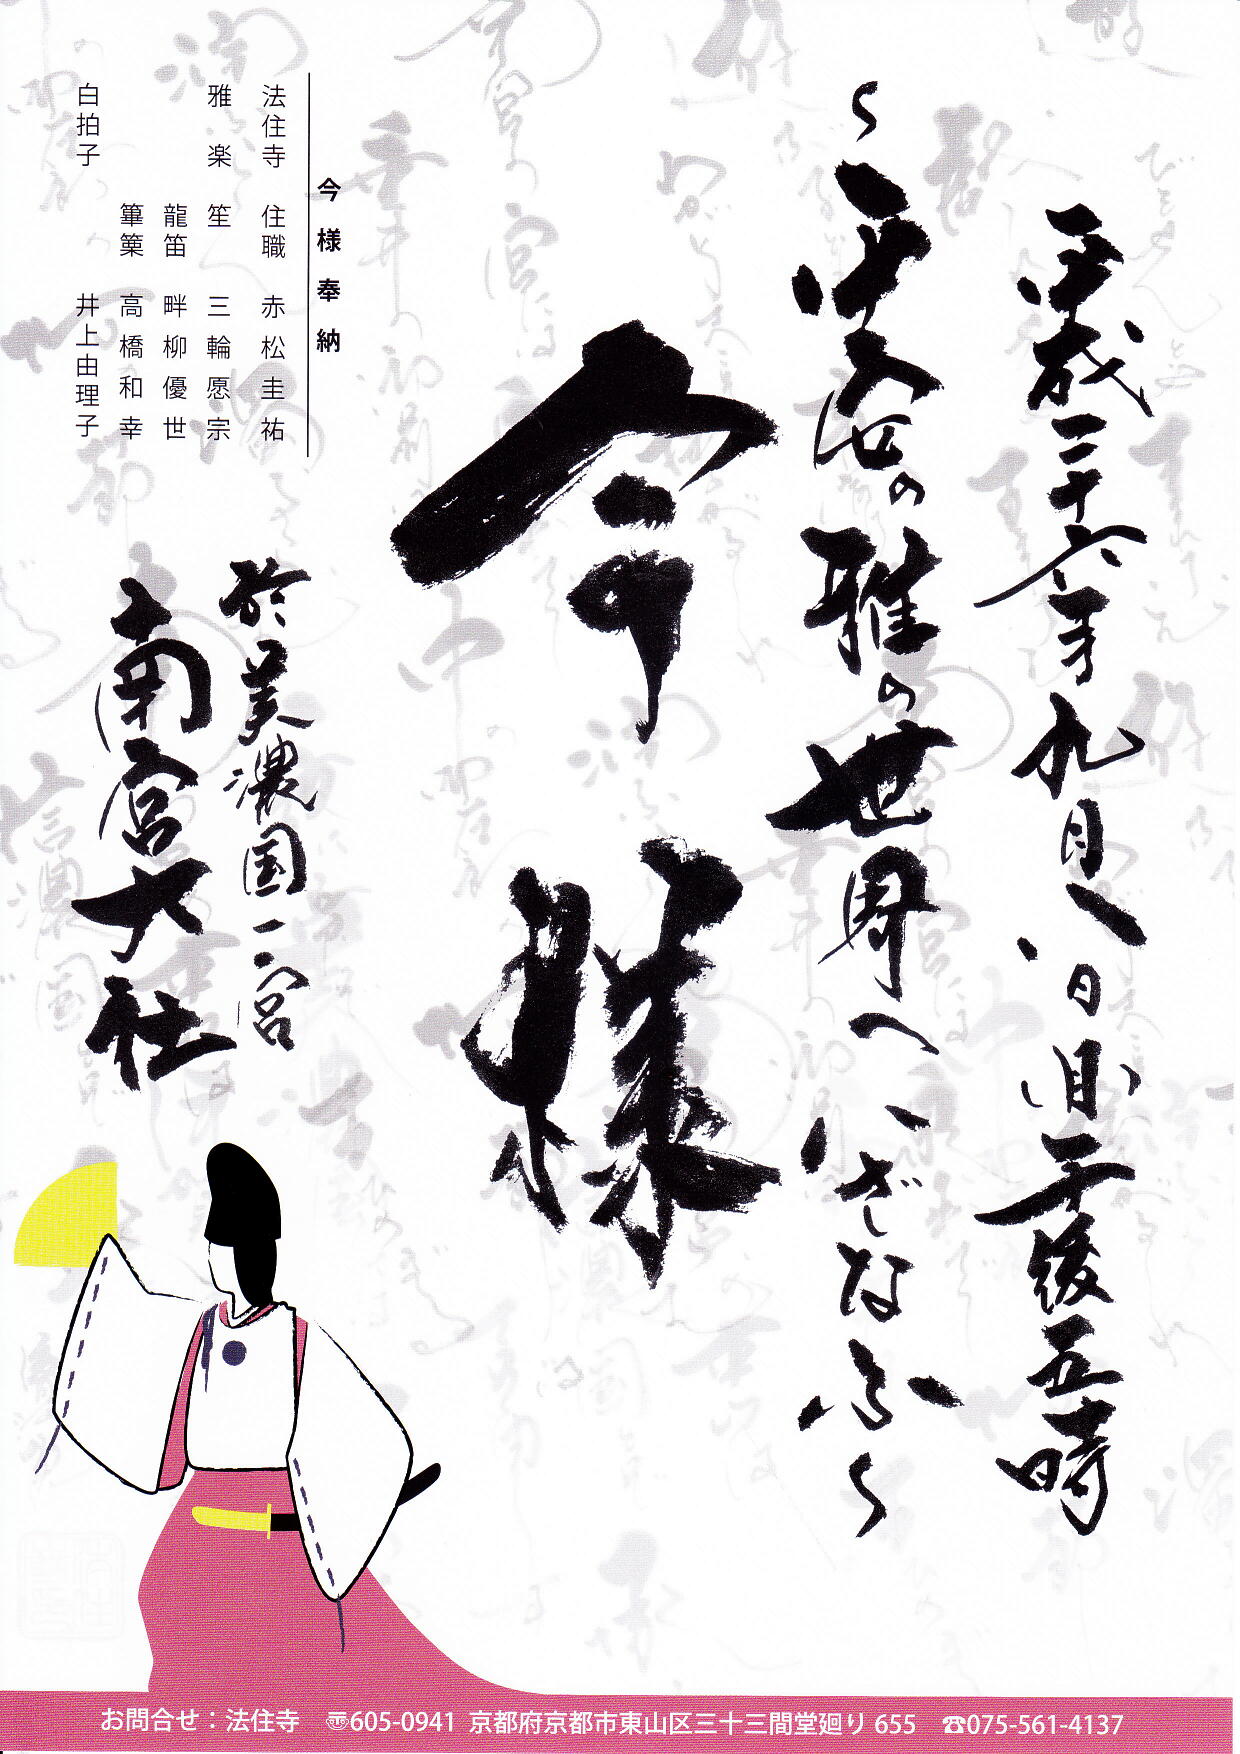 平成二十六年九月八日(月)午後五時
〜平安の雅の世界へいざなふ〜
今様
今様奉納
法住寺 住職 赤松圭祐
雅楽 笙 三輪愿宗
龍笛 畔柳優世
篳篥 高橋和幸
白拍子 井上由理子
於美濃国一宮
南宮大社
お問合せ：法住寺 〠605-0941 京都府京都市東山区三十三間堂廻り 655 ☎075-561-4137